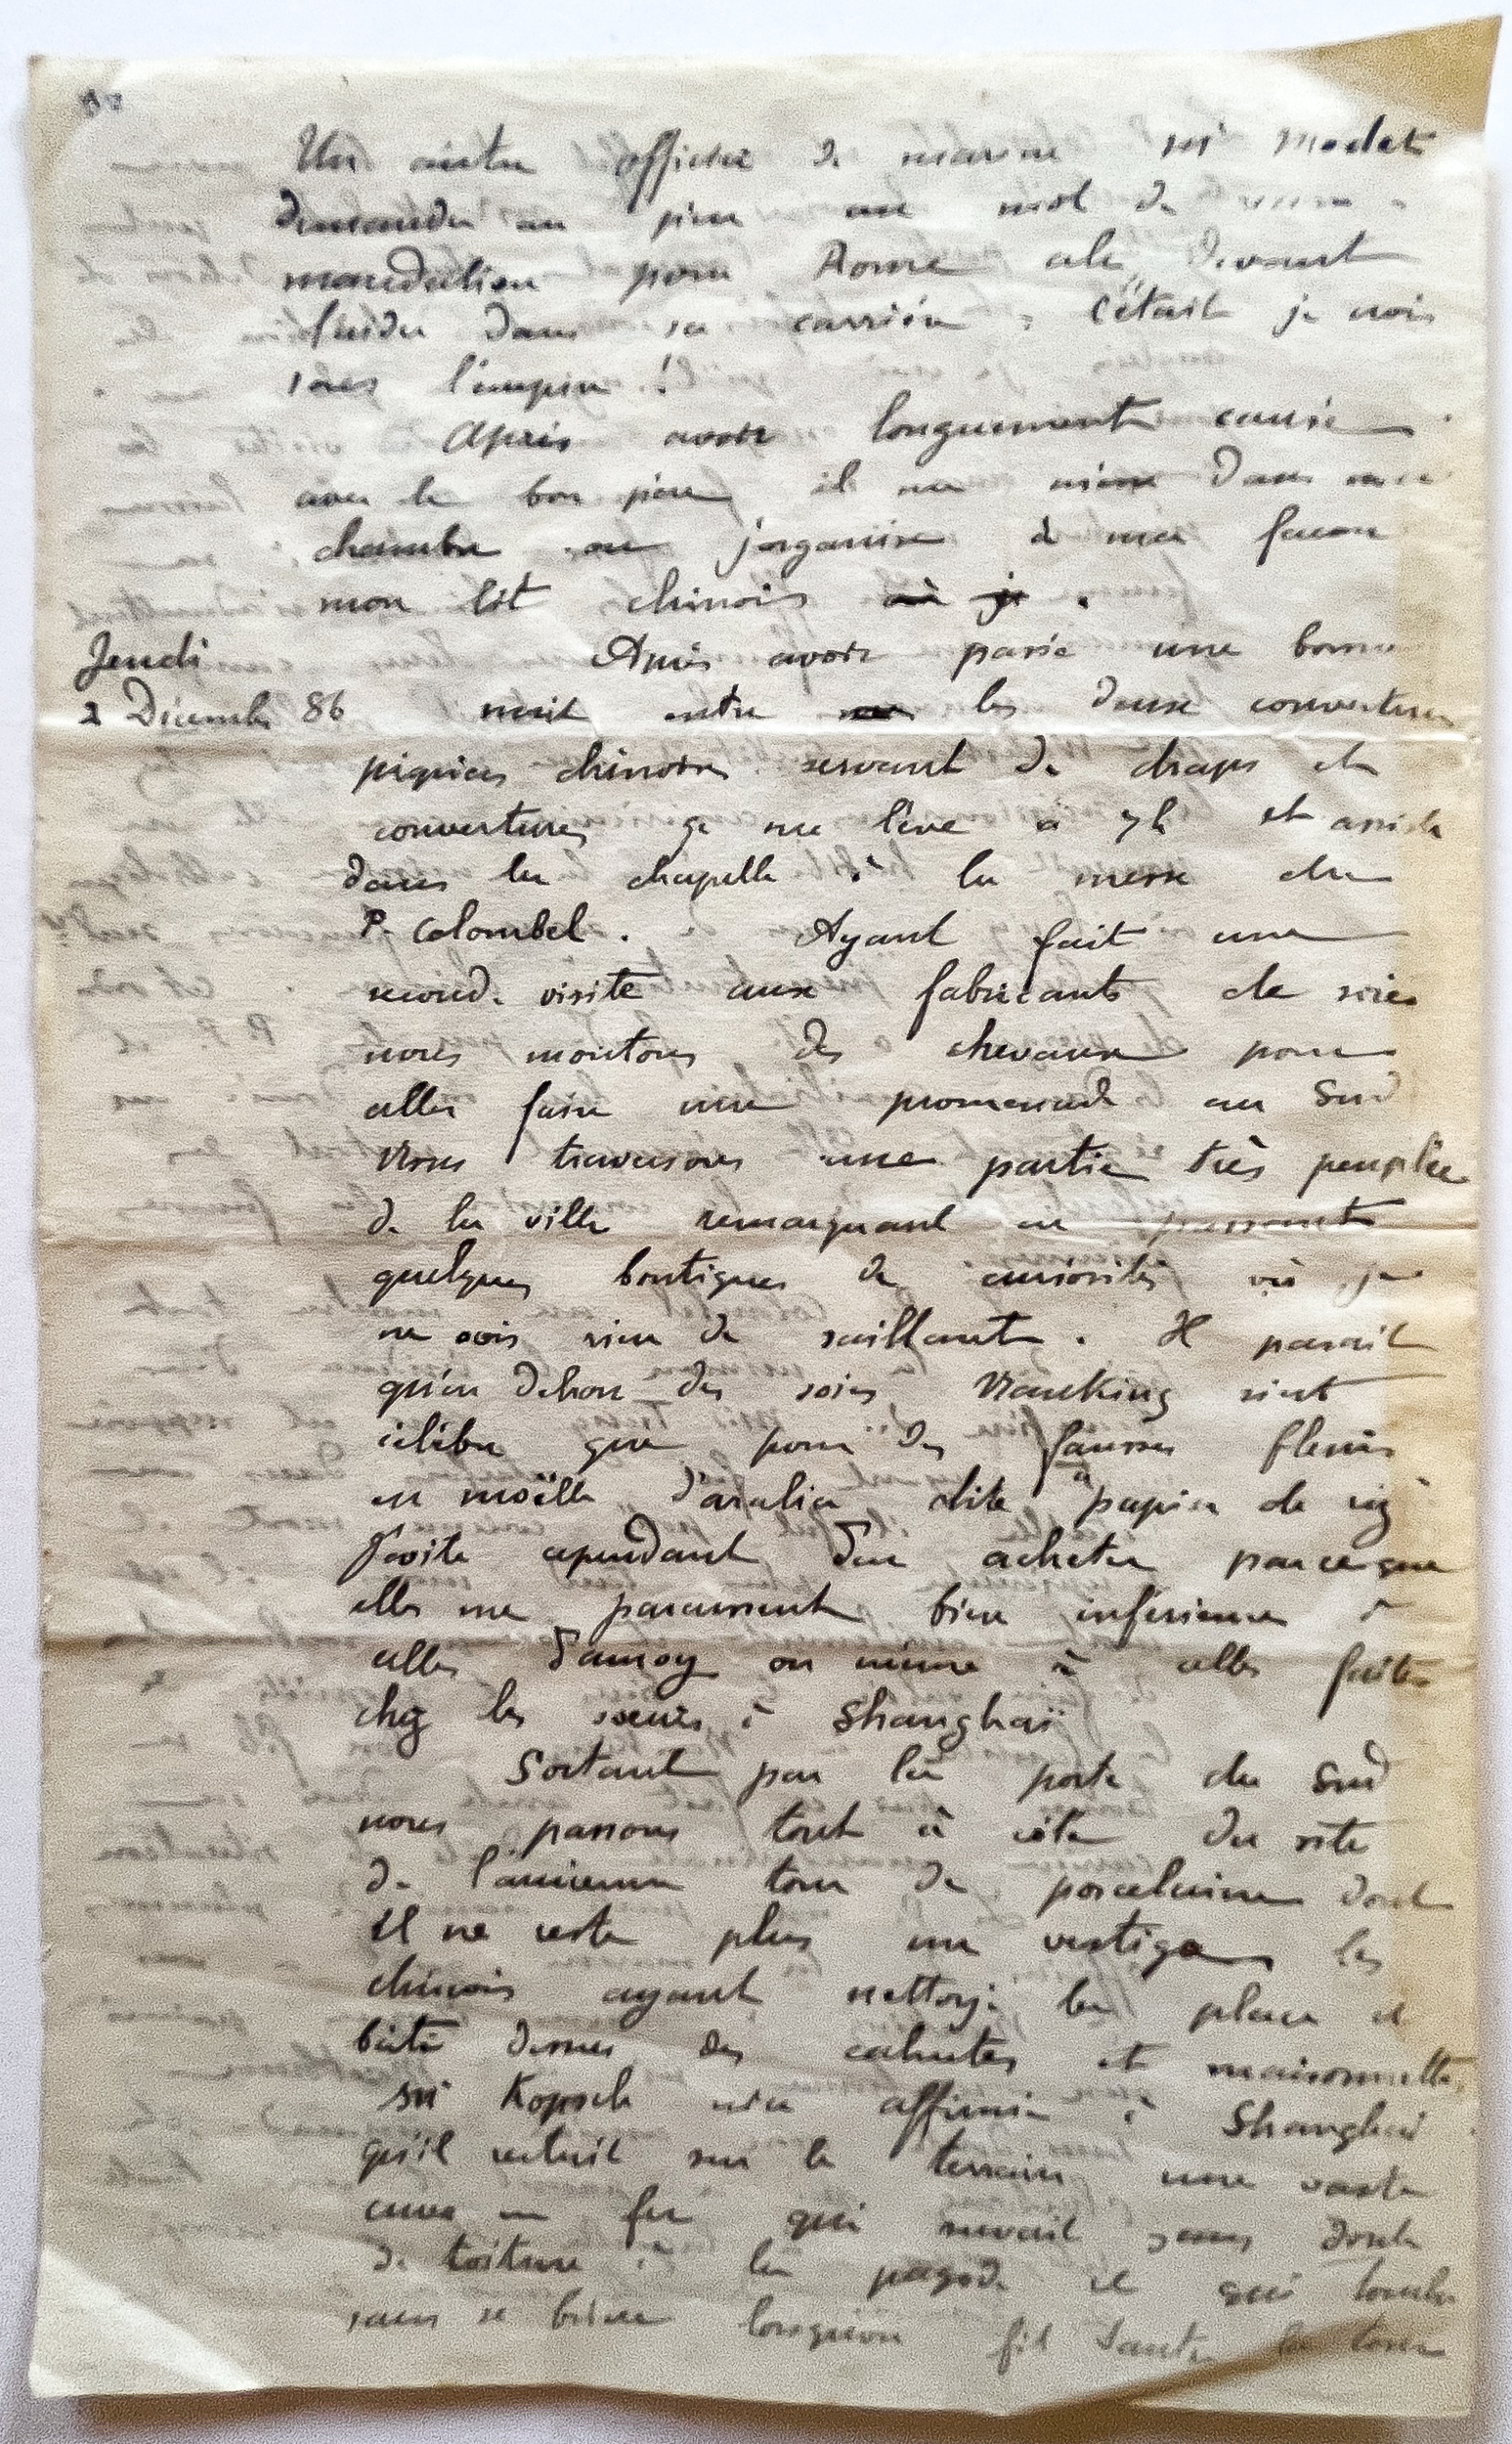 Un autre officier de marine Mr Modet
demanda au père un mot de recom-
mandation pour Rome cela devant
l'aider dans sa carrière : C'était je crois
sous l'empire !
Après avoir longuement causé
avec le bon père il me mène dans ma
chambre où j'organise à ma façon
mon lit chinois où je .
Jeudi
2 Décembre 86
Après avoir passé une bonne
nuit entre les deux couvertures
piquées chinoises servant de draps et
couvertures je me lève à 7h et assiste
dans la chapelle à la messe du
P. Colombel . Ayant fait une
seconde visite aux fabricants de soies
nous montons des chevaux pour
aller faire une promenade au Sud
Nous traversons une partie très peuplée
de la ville remarquant en passant
quelques boutiques de curiosités où je
ne vois rien de saillant . Il parait
qu'en dehors des soies Nanking n'est
célèbre que pour des fausses fleurs
en moëlle d'aralia dite "papier de riz"
J'évite cependant d'en acheter parceque
elles me paraissent bien inférieures à
celles d'amoy ou même à celles faites
chez les sœurs à Shanghaï
Sortant par la porte du Sud
nous passons tout à côté du site
de l'ancienne tour de porcelaine dont
il ne reste plus un vestige les
chinois ayant nettoyé la place et
bâti dessus des cahutes et maisonnettes
Mr Kopsch m'a affirmé à Shanghai
qu'il restait sur le terrain une vaste
cuve en fer qui servait sans doute
de toiture à la pagode et qui tomba
sans se briser lorsqu'on fit sauter la tour